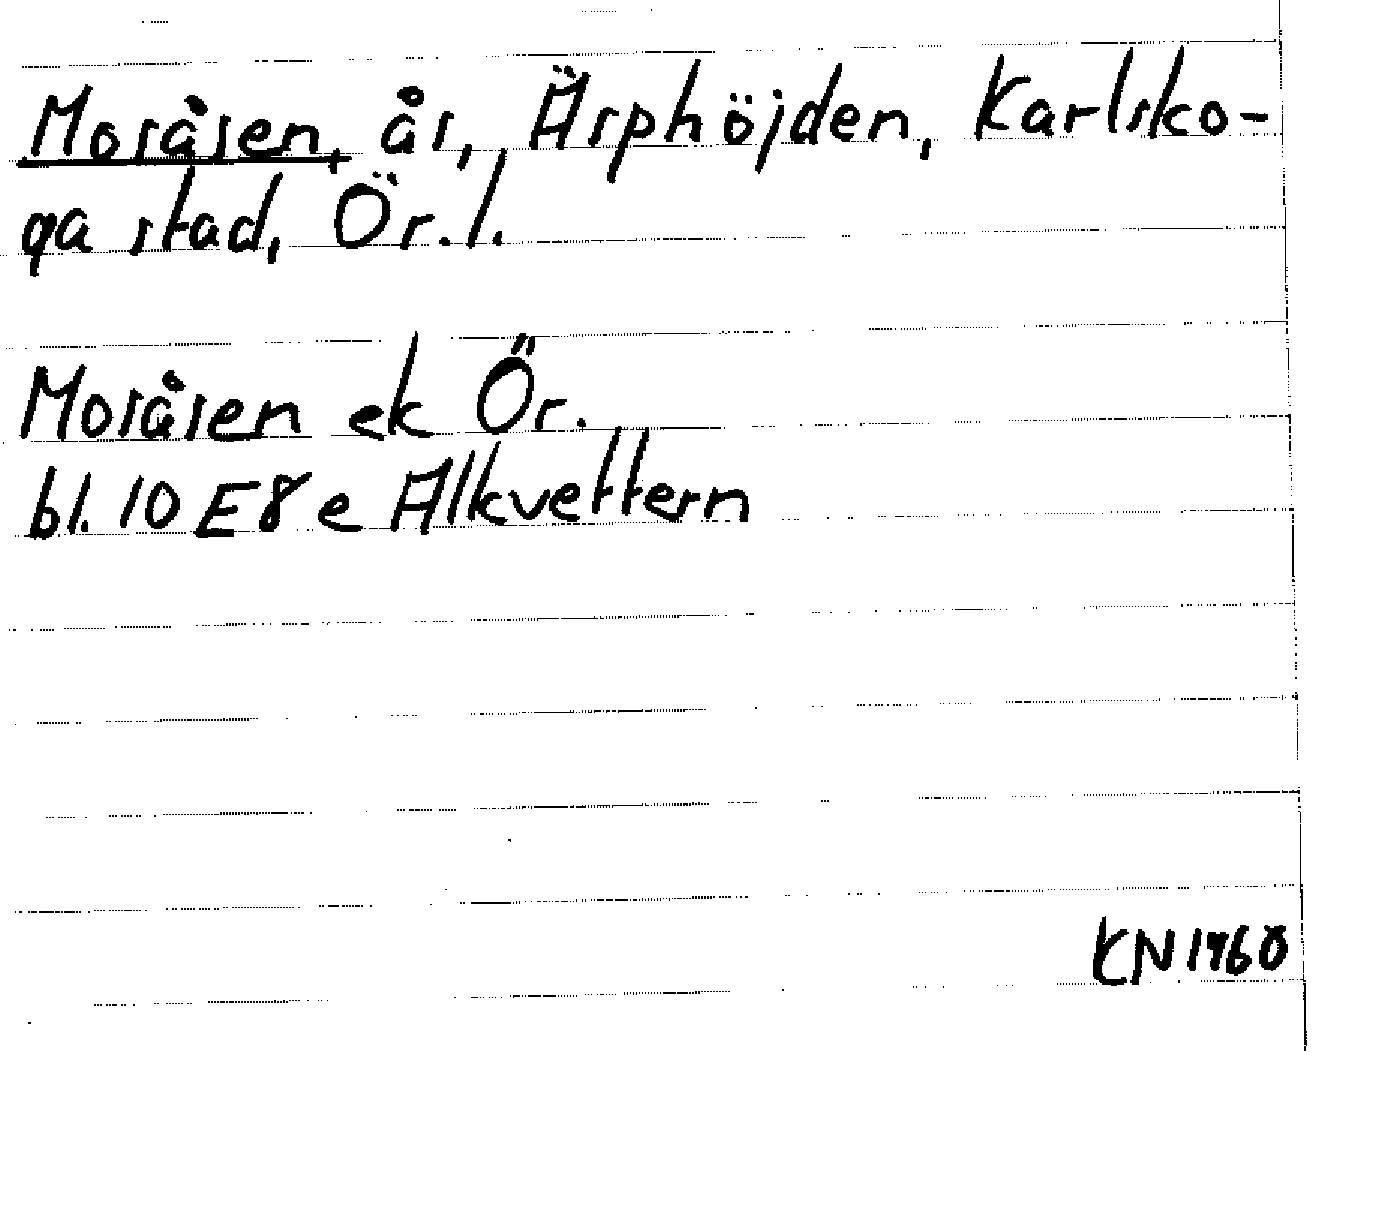 Mosåsen, ås, Äsphöjden, Karlsko-
ga stad, Ör. l.
Mosåsen ek Ör.
bl. 10 E8e Alkvettern
KN1960